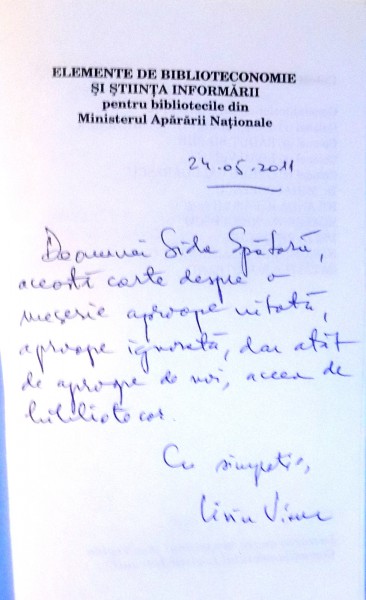 ELEMENTE DE BIBLIOTECONOMIE
ȘI ȘTIINȚA INFORMĂRII
pentru bibliotecile din
Ministerul Apărării Naționale
24.05.2011
Doamnei Sida Spătaru,
această carte despre o
meserie aproape uitată,
aproape ignorată, dar atât
de aproape de noi, aceea de
bibliotecar.
Cu simpatie,